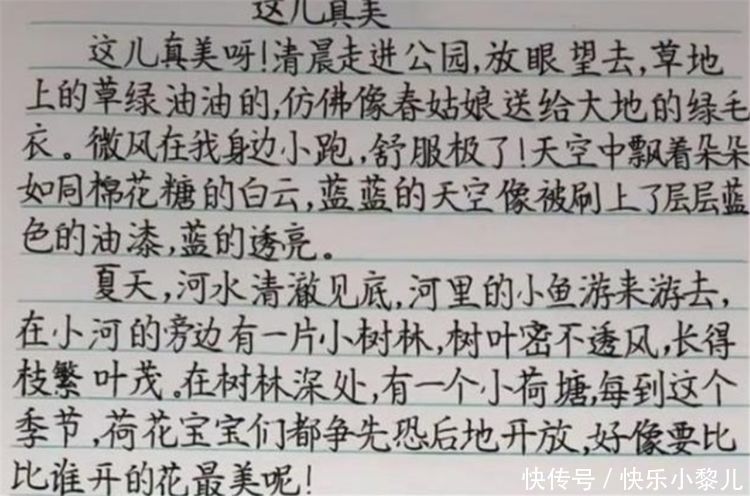 这儿真美
这儿真美呀!清晨走进公园,放眼望去,草地
上的草绿油油的,仿佛像春姑娘送给大地的绿毛
衣。微风在我身边小跑,舒服极了!天空中飘着朵朵
如同棉花糖的白云,蓝蓝的天空像被刷上了层层蓝
色的油漆,蓝的透亮。
夏天,河水清澈见底,河里的小鱼游来游去,
在小河的旁边有一片小树林,树叶密不透风,长得
枝繁叶茂。在树林深处,有一个小荷塘,每到这个
季节,荷花宝宝们都争先恐后地开放,好像要比
比谁开的花最美呢!
快传号/快乐小黎儿